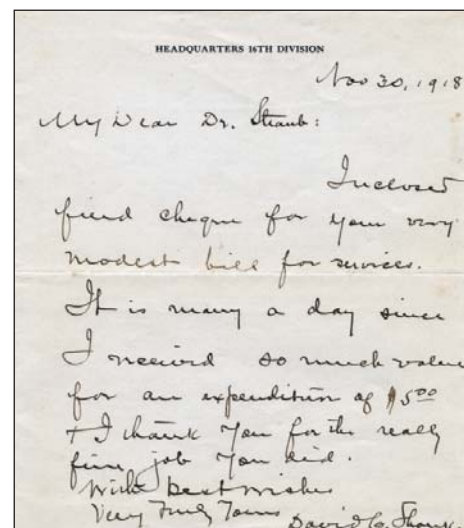 HEADQUARTERS 16TH DIVISION
Nov 30, 1918
My Dear Dr. Straub:
Inclosed
find cheque for your very
modest bill for services.
It is many a day since
I received so much value
for an expenditure of $5.00
+ I thank you for the really
fine job you did.
With best wishes
Very Truly Yours
David C. Shanks